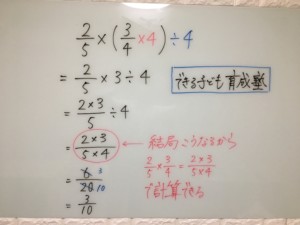 2/5 × (3/4 ×4) ÷4
= 2/5 × 3 ÷ 4
できる子ども育成塾
= 2×3/5 ÷4
= 2×3/5×4 ← 結局こうなるから
2/5 × 3/4 = 2×3/5×4
で計算できる
= 6 3/20 10
= 3/10